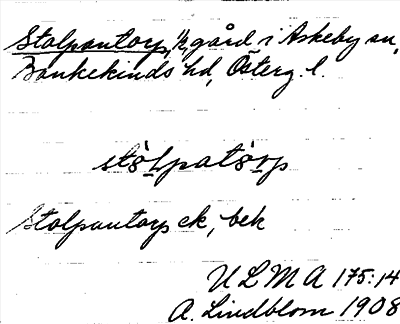 Stolpantorp, 1/2 gård i Askeby sn,
Bankekinds hd, Österg. l.
stòlpatòrp
Stolpantorp ck, bek
U L M A 175:14
A. Lindblom 1908